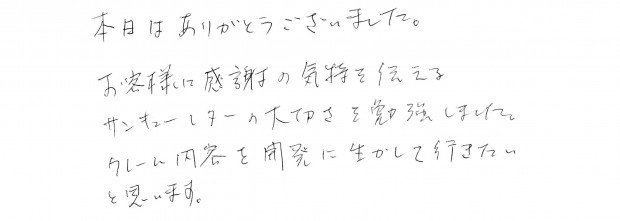 本日はありがとうございました。
お客様に感謝の気持を伝える
サンキューレターの大切さを勉強しました。
クレーム内容を開発に生かして行きたい
と思います。